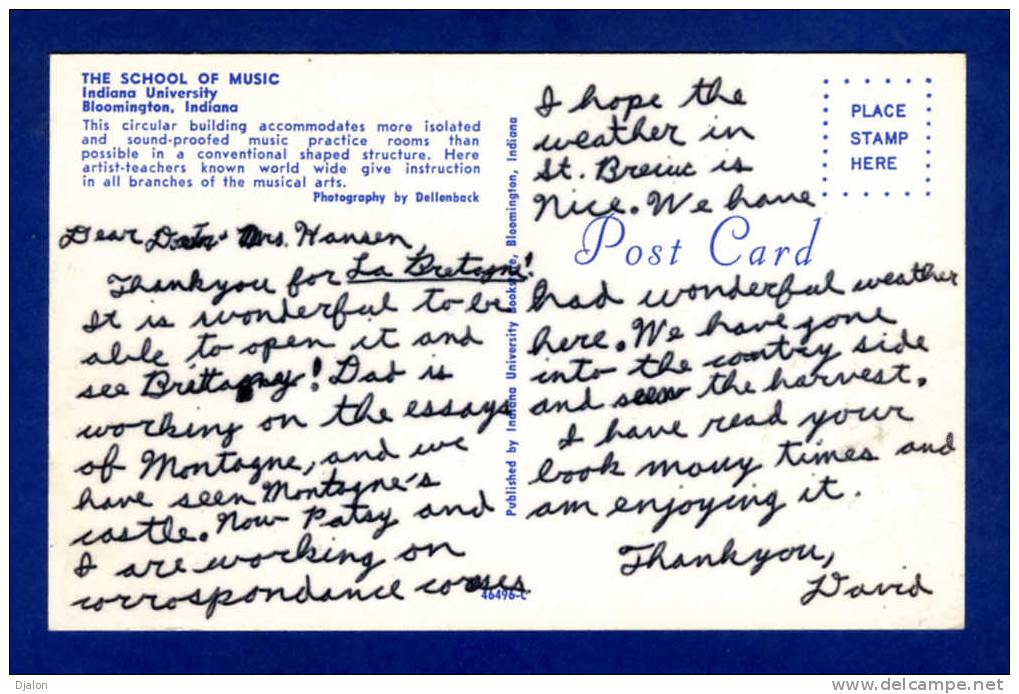 THE SCHOOL OF MUSIC
Indiana University
Bloomington, Indiana
This circular building accommodates more isolated
and sound-proofed music practice rooms than
possible in a conventional shaped structure. Here
artist-teachers known world wide give instruction
in all branches of the musical arts.
Photography by Dellenback
Dear Mrs. Hansen,
Thankyou for La Bretagne!
It is wonderful to be
able to open it and
see Brittagney! Dad is
working on the essays
of Montagne, and we
have seen Montagne's
castle. Now Patsy and
I are working on
corrospondance corses
46496-C
Published by Indiana University Bookstore, Bloomington, Indiana
PLACE
STAMP
HERE
Post Card
I hope the
weather in
St. Breiuc is
Nice. We have
had wonderful weather
here. We have gone
into the contry side
and seen the harvest.
I have read your
book many times and
am enjoying it.
Thankyou,
David
Djalon
www.delcampe.net